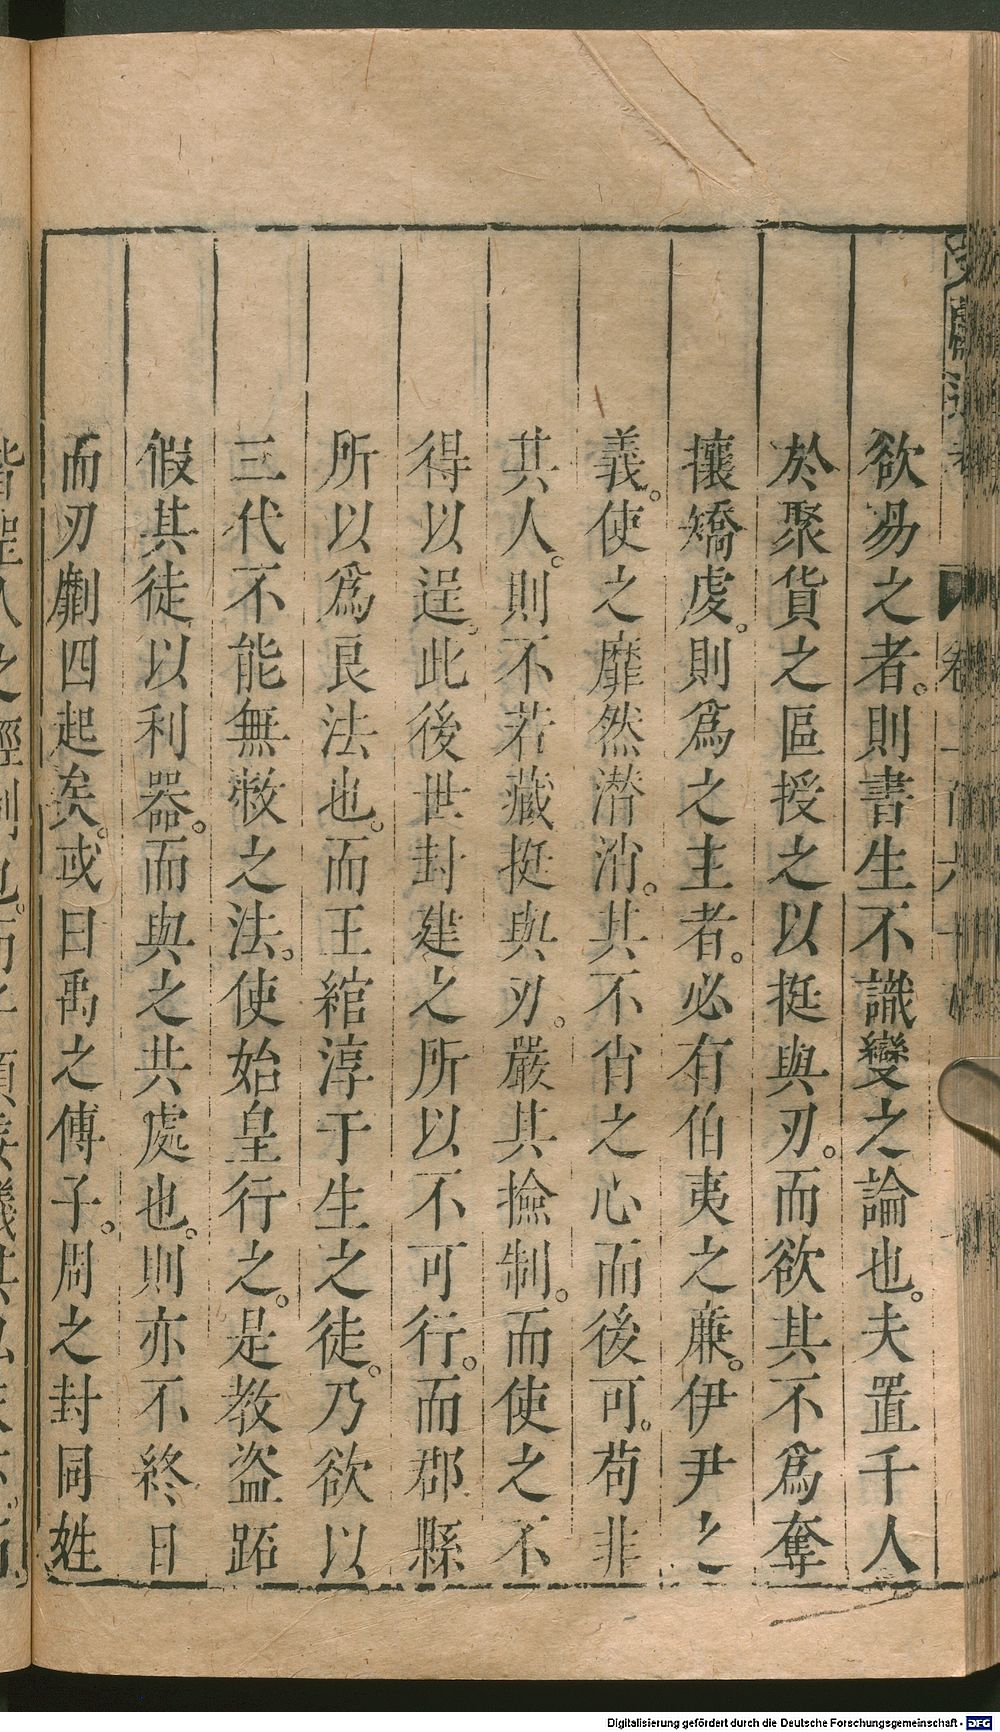 欲昜之者。則書生不識變之論也。夫置千人
於聚貨之區授之以挺與刃。而欲其不爲奪
攘矯虔。則爲之主者。必有伯夷之亷。伊尹之
義。使之靡然潜消。其不肯之心而後可。苟非
其人。則不若藏挺與刃。嚴其撿制。而使之不
得以逞。此後世封建之所以不可行。而郡縣
所以爲良法也。而王綰淳于生之徒。乃欲以
三代不能無敝之法。使始皇行之。是教盗跖
假其徒以利器。而與之共處也。則亦不終日
而刃劘四起矣。或曰禹之傳子。周之封同姓
Digitalisierung gefördert durch die Deutsche Forschungsgemeinschaft - DFG